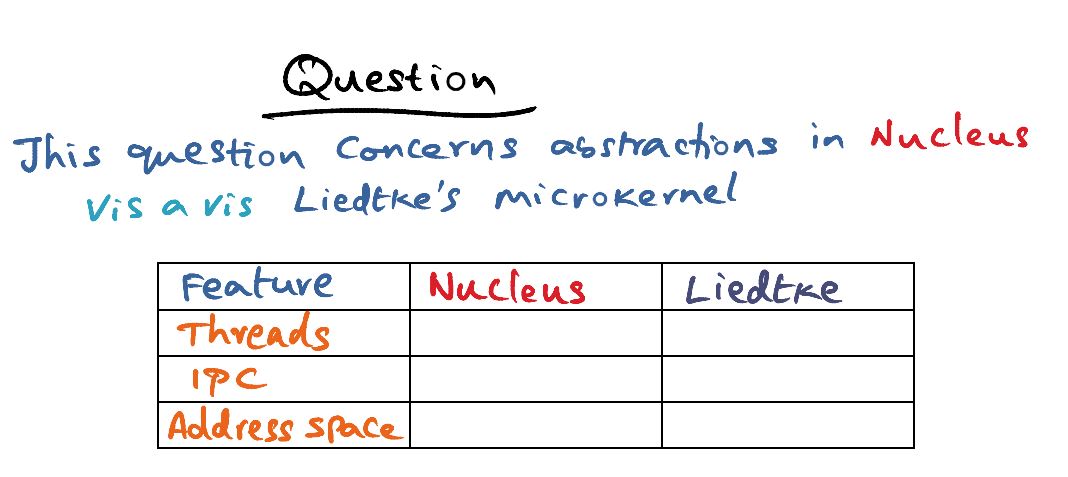 Question
This question concerns abstractions in Nucleus
vis a vis Liedtke's microkernel
Feature Nucleus Liedtke
Threads
IPC
Address space